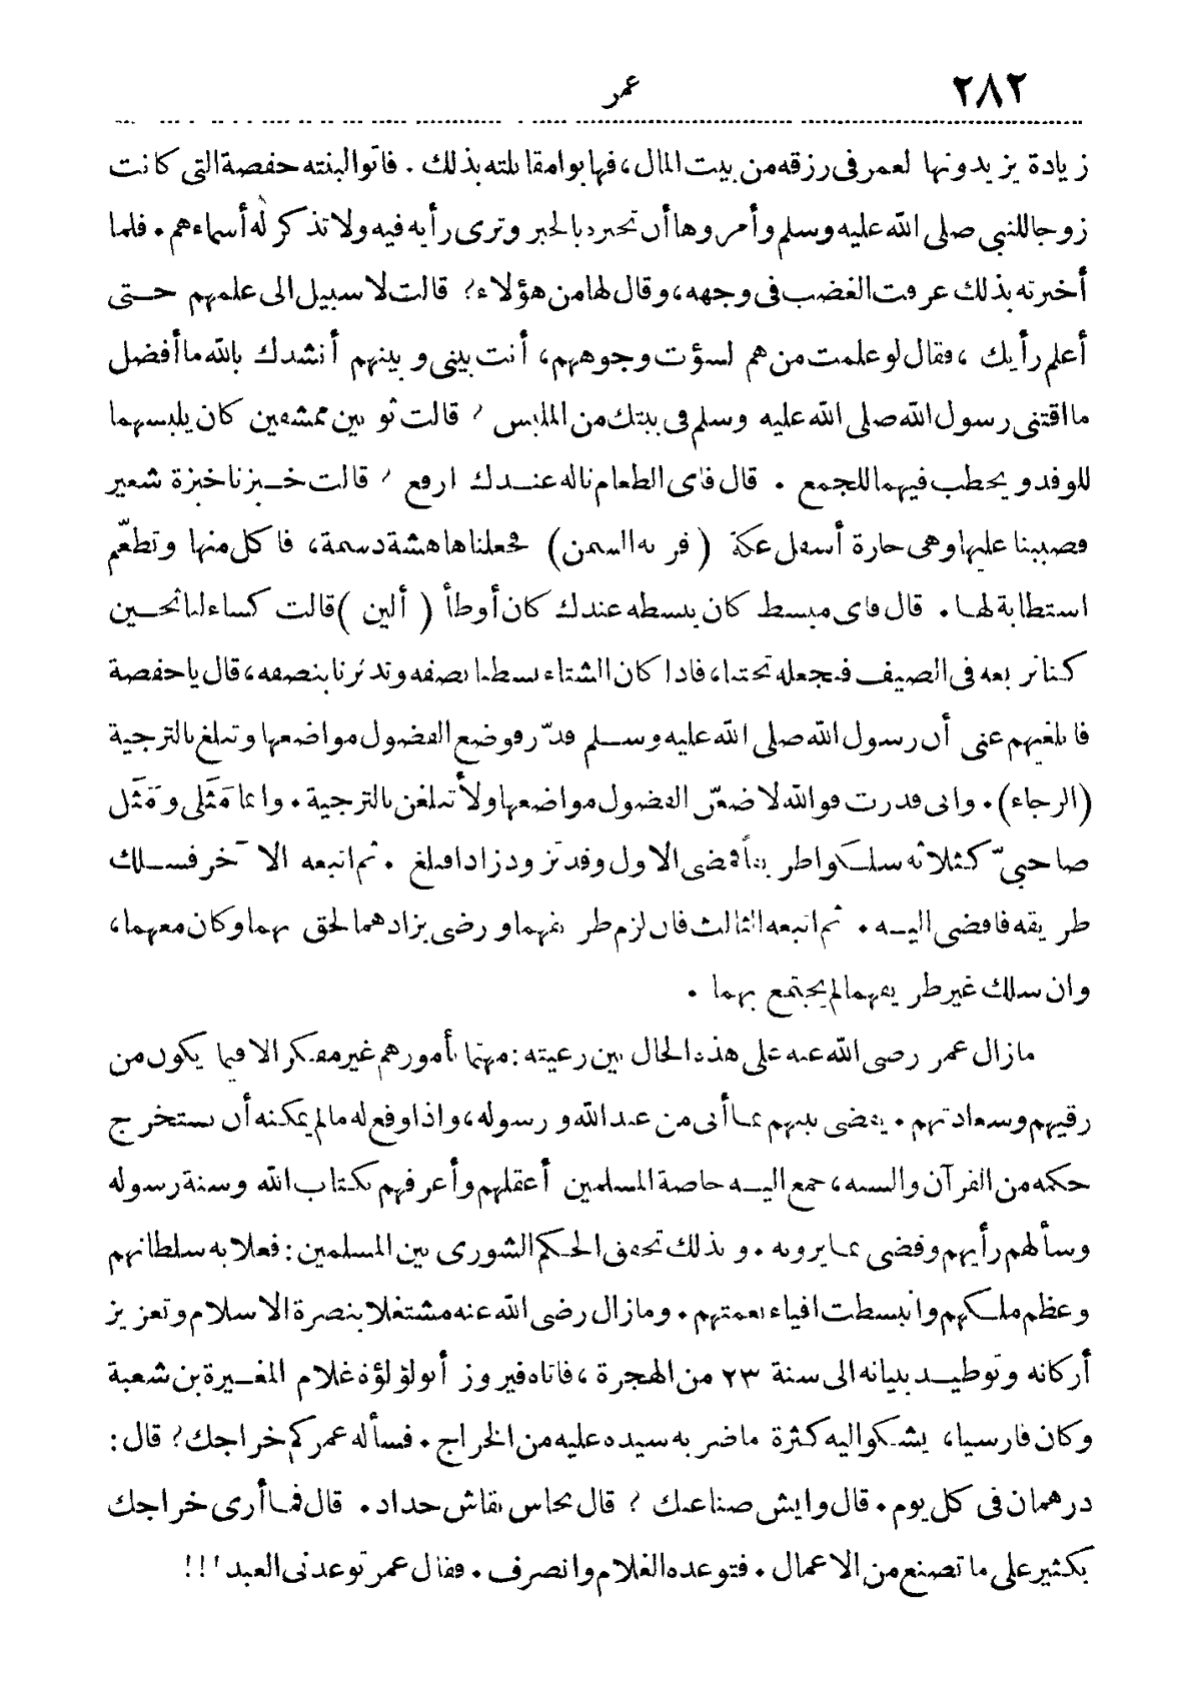 ٢٨٢
عمر
زيادة يزيدونها لعمر فى رزقه من بيت المال، فهابوا مقابلته بذلك. فأتوا لابنته حفصة التى كانت
زوجا للنبي صلى الله عليه وسلم وأمروها أن تخبره بالخبر وترى رأيه فيه ولا تذكر له أسماءهم. فلما
أخبرته بذلك عرفت الغضب فى وجهه، وقال لها من هؤلاء؟ قالت لا سبيل الى علمهم حتى
أعلم رأيك، فقال لو علمت من هم لسؤت وجوههم، أنت بينى و بينهم أنشدك بالله ما أفضل
ما اقتنى رسول الله صلى الله عليه وسلم فى بيتك من الملبس؟ قالت ثو بين ممشقين كان يلبسهما
للوفد و يخطب فيهما للجمع. قال فأى الطعام ناله عندك ارفع؟ قالت خبزنا خبزة شعير
فصببنا عليها وهى حارة أسفل عكة (قر به السمن) فجعلناها هشة دسمة، فأكل منها وتطعّم
استطابة لها. قال فأى مبسط كان يبسطه عندك كان أوطأ (ألين) قالت كساء لنا ثخين
كنا نربعه فى الصيف فنجعله تحتنا، فاذا كان الشتاء بسطنا نصفه وتدثرنا بنصفه، قال يا حفصة
فابلغيهم عنى أن رسول الله صلى الله عليه وسلم قدّر فوضع الفضول مواضعها وتبلغ بالترجية
(الرجاء). وانى قدرت فوالله لاضعنّ الفضول مواضعها ولأتبلغن بالترجية. وانما مَثَلى و مَثَل
صاحبيّ كثلاثة سلكوا طريقاً فمضى الاول وقد تزود زادا فبلغ. ثم اتبعه الآخر فسلك
طريقه فافضى اليه. ثم اتبعه الثالث فان لزم طريقهما و رضى بزادهما لحق بهما وكان معهما،
وان سلك غير طريقهما لم يجتمع بهما.
مازال عمر رضى الله عنه على هذه الحال بين رعيته: مهتما بأمورهم غير مفكر الا فيما يكون من
رقيهم وسعادتهم. يقضى بينهم بما أتى من عند الله و رسوله، واذا وقع له ما لم يمكنه أن يستخرج
حكمه من القرآن والسنه، جمع اليه خاصة المسلمين أعقلهم وأعرفهم بكتاب الله وسنة رسوله
وسألهم رأيهم وقضى بما يرونه. و بذلك تحقق الحكم الشورى بين المسلمين: فعلا به سلطانهم
وعظم ملكهم وانبسطت افياء نعمتهم. ومازال رضى الله عنه مشتغلا بنصرة الاسلام وتعزيز
أركانه وتوطيد بنيانه الى سنة ٢٣ من الهجرة، فاتاه فيروز أبولؤلؤة غلام المغيرة بن شعبة
وكان فارسيا، يشكو اليه كثرة ما ضربه سيده عليه من الخراج. فسأله عمر كم خراجك؟ قال:
درهمان فى كل يوم. قال وايش صناعتك؟ قال نحاس نقاش حداد. قال فما أرى خراجك
بكثير على ما تصنع من الاعمال. فتوعده الغلام وانصرف. فقال عمر توعدنى العبد!!!